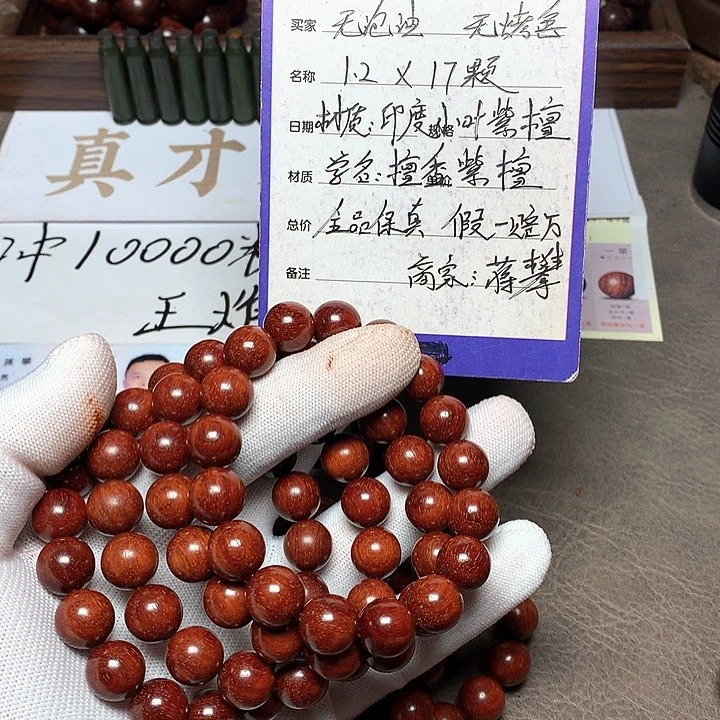 买家 无泡油 无烤色
名称 1.2 X 17颗
日期 材质:印度 规格 小叶紫檀
材质 学名:檀香紫檀
总价 全品保真 假一赔万
备注 商家:蒋攀
真才
10000
王
蒋攀
一星